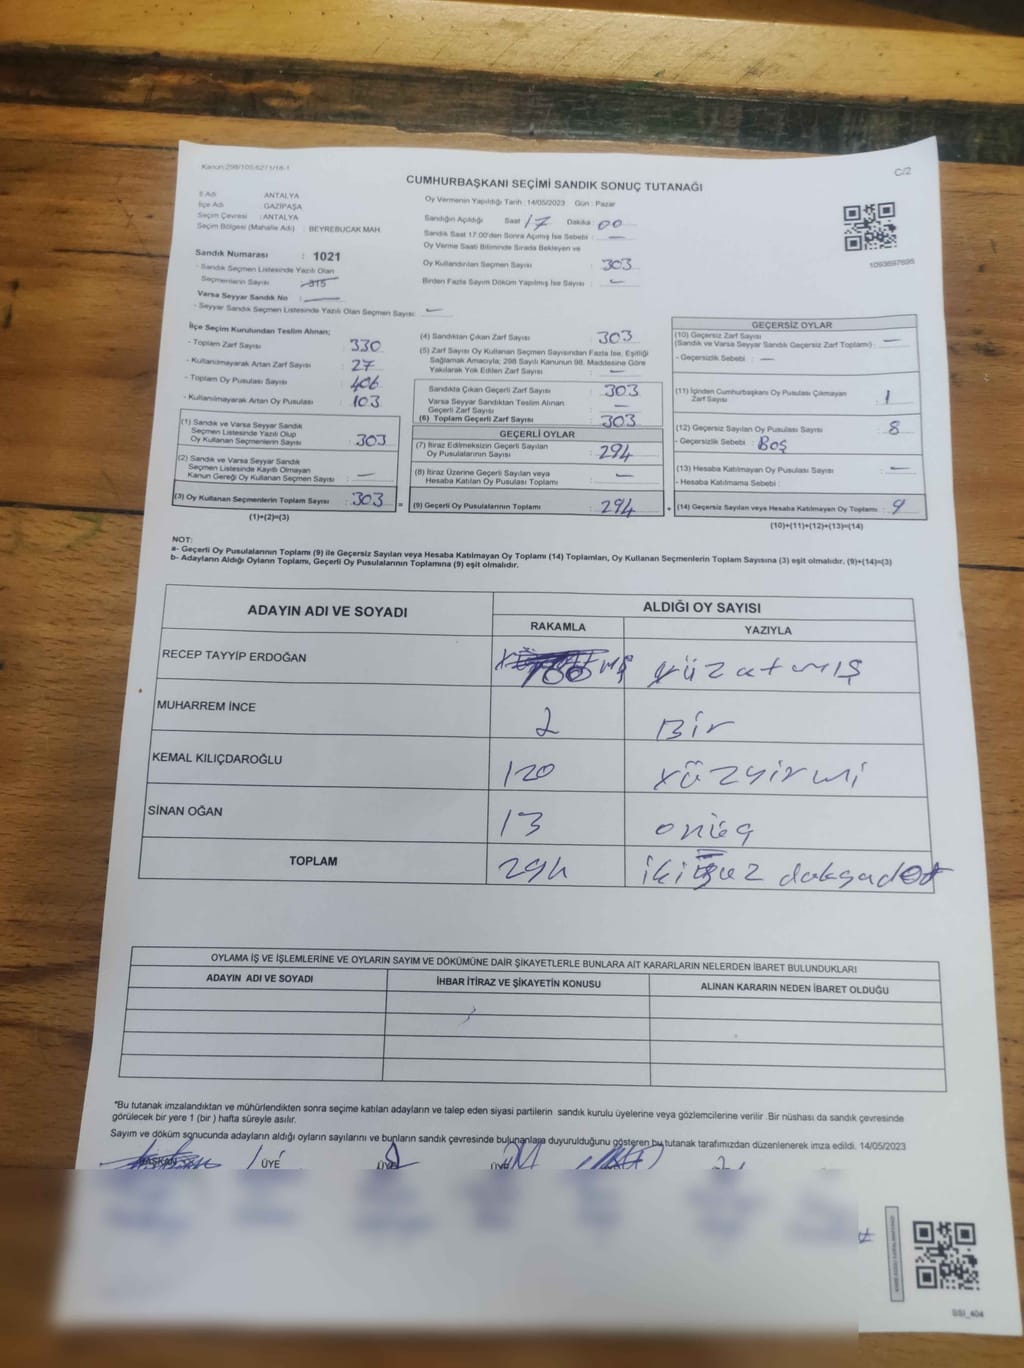 Kanun:298/105;6271/18-1
C/2
CUMHURBAŞKANI SEÇİMİ SANDIK SONUÇ TUTANAĞI
İl Adı ANTALYA
İlçe Adı GAZİPAŞA
Seçim Çevresi :ANTALYA
Seçim Bölgesi (Mahalle Adı) : BEYREBUCAK MAH.
Oy Vermenin Yapıldığı Tarih :14/05/2023 Gün : Pazar
Sandığın Açıldığı Saat 17 Dakika : 00
Sandık Saat 17:00'den Sonra Açılmış İse Sebebi : —
Oy Verme Saati Bitiminde Sırada Bekleyen ve
Oy Kullandırılan Seçmen Sayısı : 303
Birden Fazla Sayım Döküm Yapılmış İse Sayısı : —
1093697695
Sandık Numarası : 1021
- Sandık Seçmen Listesinde Yazılı Olan
Seçmenlerin Sayısı : 315
Varsa Seyyar Sandık No :
- Seyyar Sandık Seçmen Listesinde Yazılı Olan Seçmen Sayısı: —
İlçe Seçim Kurulundan Teslim Alınan;
- Toplam Zarf Sayısı : 330
- Kullanılmayarak Artan Zarf Sayısı : 27
- Toplam Oy Pusulası Sayısı : 406
- Kullanılmayarak Artan Oy Pusulası : 103
(1) Sandık ve Varsa Seyyar Sandık
Seçmen Listesinde Yazılı Olup
Oy Kullanan Seçmenlerin Sayısı : 303
(2) Sandık ve Varsa Seyyar Sandık
Seçmen Listesinde Kayıtlı Olmayan
Kanun Gereği Oy Kullanan Seçmen Sayısı : —
(3) Oy Kullanan Seçmenlerin Toplam Sayısı : 303
(1)+(2)=(3)
(4) Sandıktan Çıkan Zarf Sayısı : 303
(5) Zarf Sayısı Oy Kullanan Seçmen Sayısından Fazla İse, Eşitliği
Sağlamak Amacıyla; 298 Sayılı Kanunun 98. Maddesine Göre
Yakılarak Yok Edilen Zarf Sayısı : —
Sandıkta Çıkan Geçerli Zarf Sayısı : 303
Varsa Seyyar Sandıktan Teslim Alınan
Geçerli Zarf Sayısı : —
(6) Toplam Geçerli Zarf Sayısı : 303
GEÇERLİ OYLAR
(7) İtiraz Edilmeksizin Geçerli Sayılan
Oy Pusulalarının Sayısı : 294
(8) İtiraz Üzerine Geçerli Sayılan veya
Hesaba Katılan Oy Pusulası Toplamı : —
= (9) Geçerli Oy Pusulalarının Toplamı : 294
GEÇERSİZ OYLAR
(10) Geçersiz Zarf Sayısı
(Sandık ve Varsa Seyyar Sandık Geçersiz Zarf Toplamı) : —
- Geçersizlik Sebebi : —
(11) İçinden Cumhurbaşkanı Oy Pusulası Çıkmayan
Zarf Sayısı : 1
(12) Geçersiz Sayılan Oy Pusulası Sayısı : 8
- Geçersizlik Sebebi : BOŞ
(13) Hesaba Katılmayan Oy Pusulası Sayısı : —
- Hesaba Katılmama Sebebi :
+ (14) Geçersiz Sayılan veya Hesaba Katılmayan Oy Toplamı : 9
(10)+(11)+(12)+(13)=(14)
NOT:
a- Geçerli Oy Pusulalarının Toplamı (9) ile Geçersiz Sayılan veya Hesaba Katılmayan Oy Toplamı (14) Toplamları, Oy Kullanan Seçmenlerin Toplam Sayısına (3) eşit olmalıdır. (9)+(14)=(3)
b- Adayların Aldığı Oyların Toplamı, Geçerli Oy Pusulalarının Toplamına (9) eşit olmalıdır.
ADAYIN ADI VE SOYADI ALDIĞI OY SAYISI
RAKAMLA YAZIYLA
RECEP TAYYİP ERDOĞAN yüzatmış
MUHARREM İNCE 2 Bir
KEMAL KILIÇDAROĞLU 120 yüzyirmi
SİNAN OĞAN 13 onüç
TOPLAM 294 ikiyüz
OYLAMA İŞ VE İŞLEMLERİNE VE OYLARIN SAYIM VE DÖKÜMÜNE DAİR ŞİKAYETLERLE BUNLARA AİT KARARLARIN NELERDEN İBARET BULUNDUKLARI
ADAYIN ADI VE SOYADI İHBAR İTİRAZ VE ŞİKAYETİN KONUSU ALINAN KARARIN NEDEN İBARET OLDUĞU
*Bu tutanak imzalandıktan ve mühürlendikten sonra seçime katılan adayların ve talep eden siyasi partilerin sandık kurulu üyelerine veya gözlemcilerine verilir .Bir nüshası da sandık çevresinde
görülecek bir yere 1 (bir ) hafta süreyle asılır.
Sayım ve döküm sonucunda adayların aldığı oyların sayılarını ve bunların sandık çevresinde bulunanlara duyurulduğunu gösteren bu tutanak tarafımızdan düzenlenerek imza edildi. 14/05/2023
BAŞKAN ÜYE ÜYE ÜYE
SSI_404